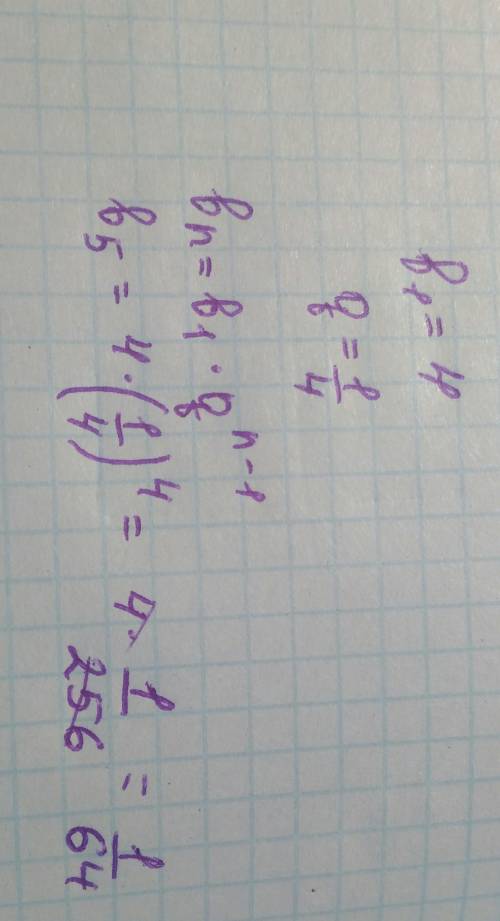 b₁ = 4
q = 1/4
bₙ = b₁ · qⁿ⁻¹
b₅ = 4 · (1/4)⁴ = 4 · 1/256 = 1/64